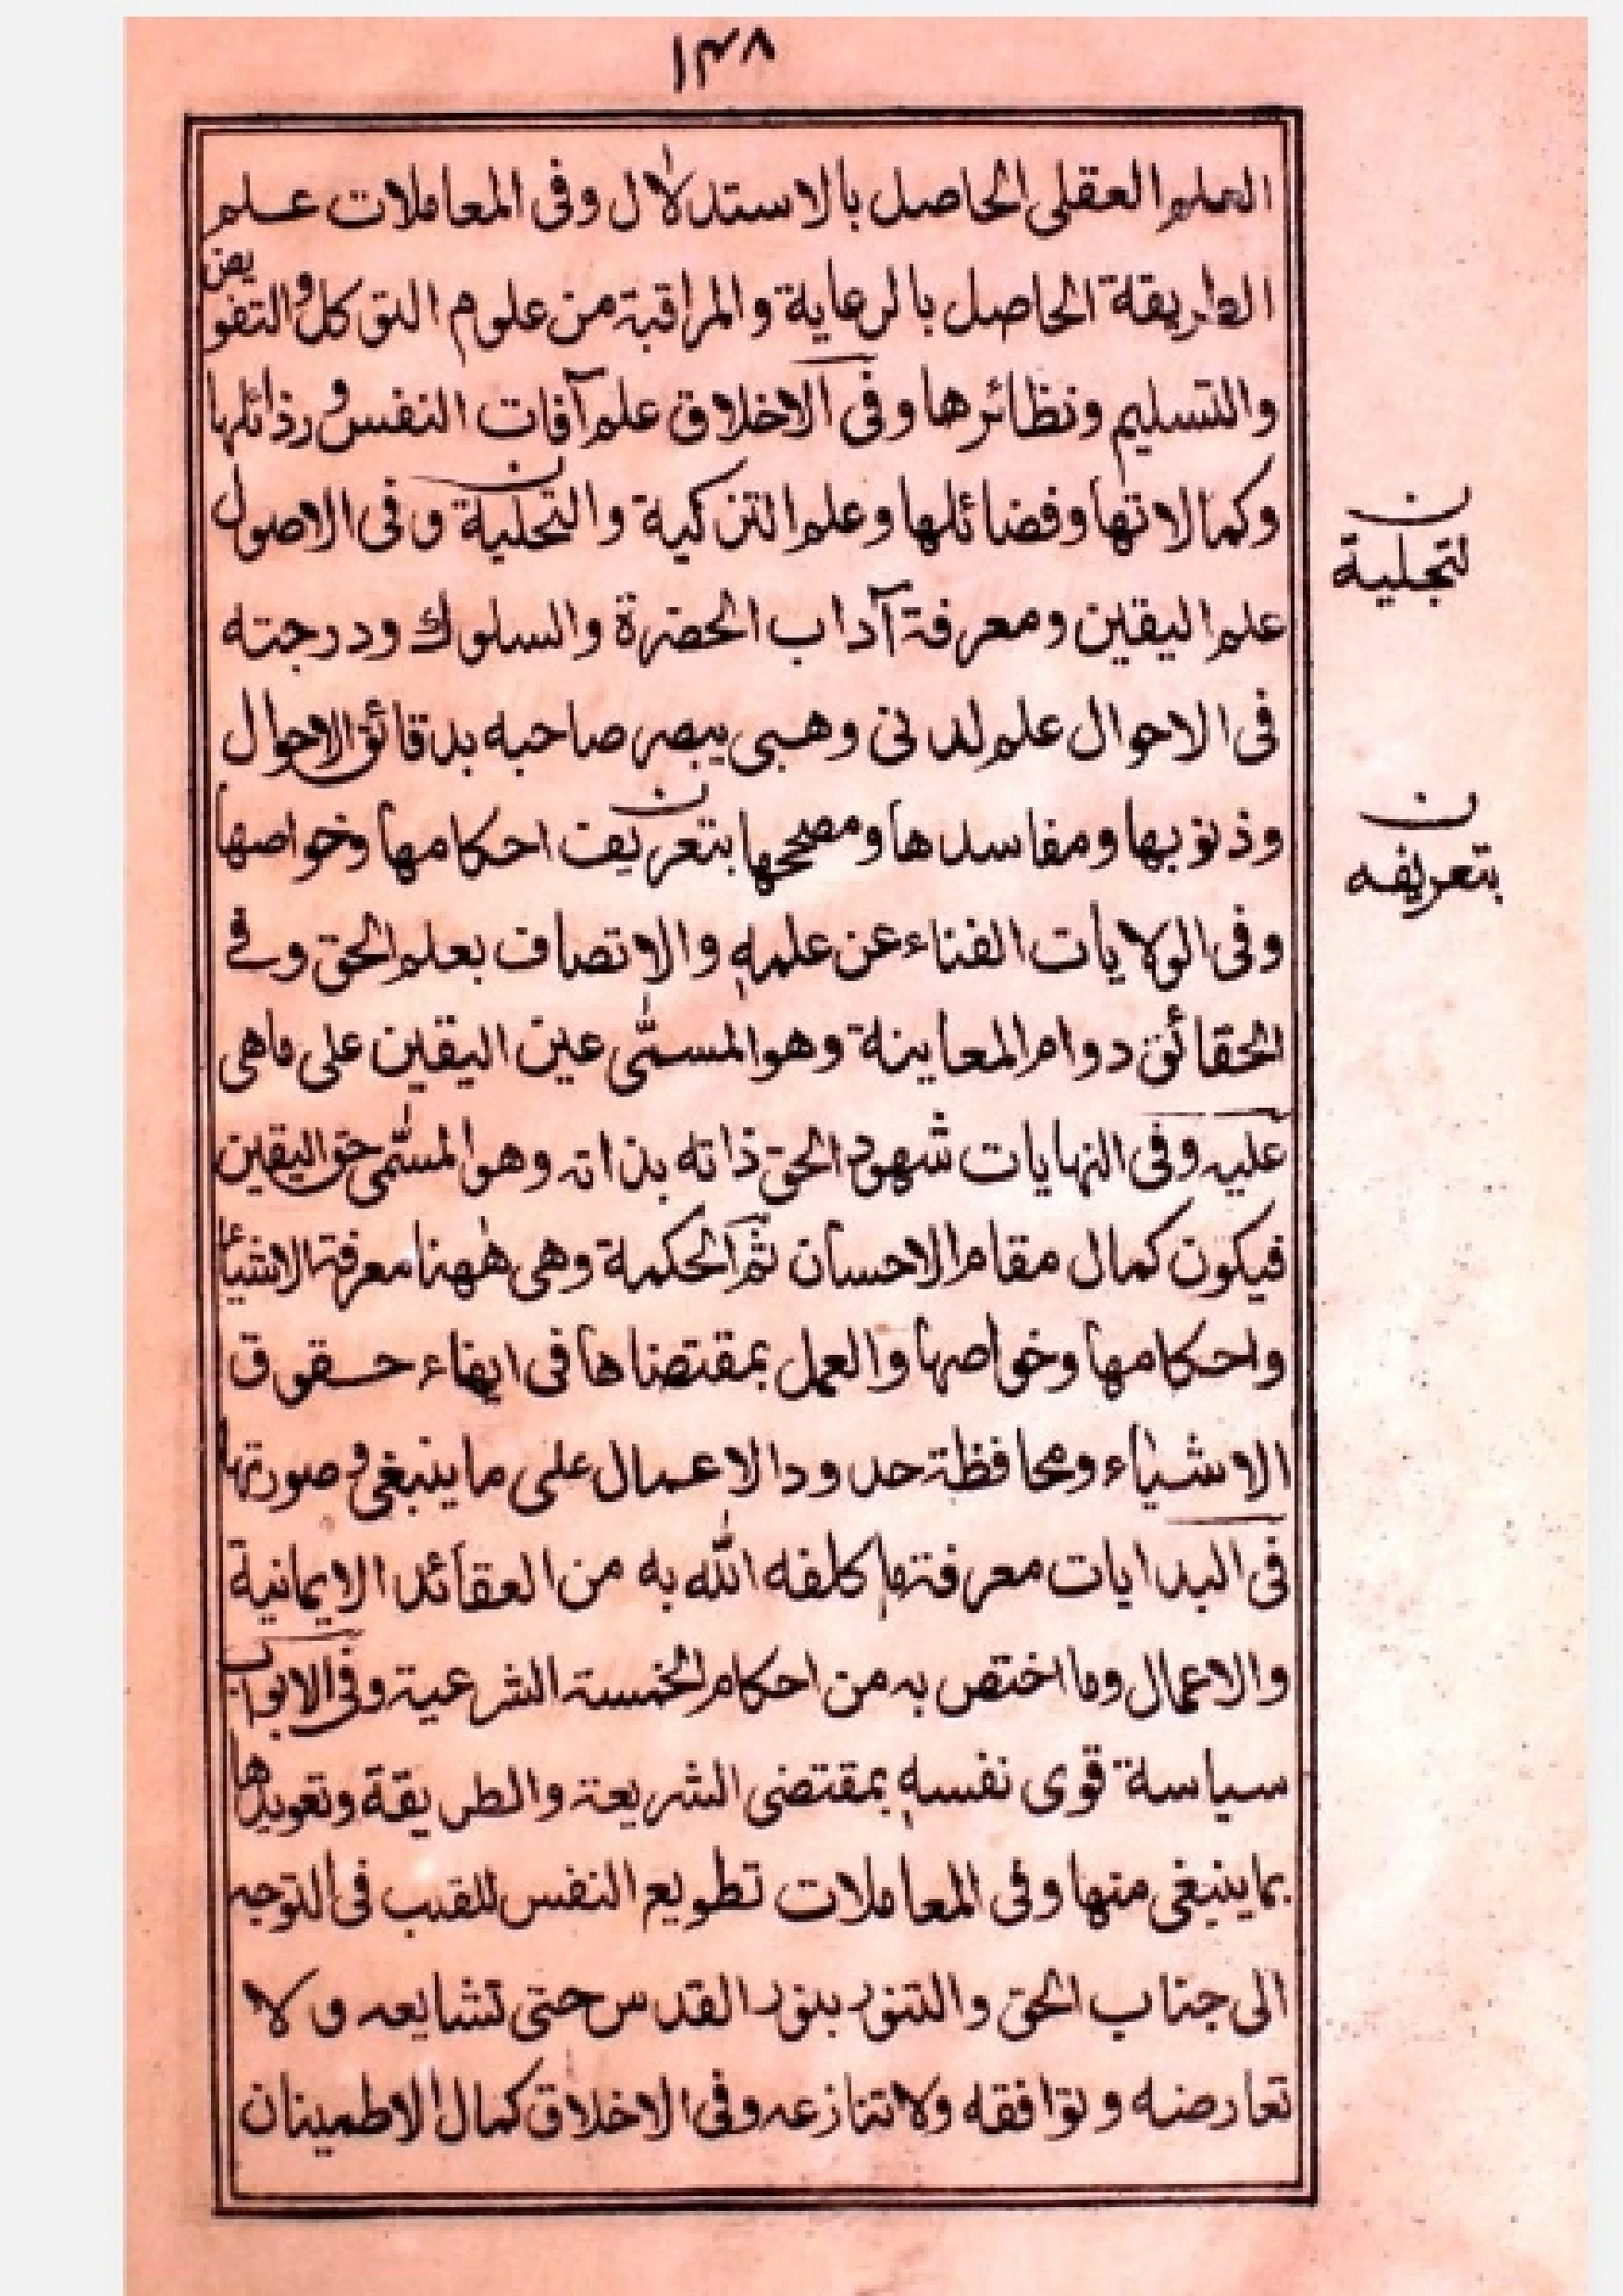 ١٣٨
العلم العقلى الحاصل بالاستدلال وفى المعاملات علم
الطريقة الحاصل بالرعاية والمراقبة من علوم التوكل والتفويض
والتسليم ونظائرها وفى الاخلاق علم آفات النفس ورذائلها
وكمالاتها وفضائلها وعلم التزكية والتحلية وفى الاصول
ن
لتجلية
علم اليقين ومعرفة آداب الحضرة والسلوك ودرجته
فى الاحوال علم لدنى وهبى يبصر صاحبه بدقائق الاحوال
وذنوبها ومفاسدها ومصححها بتعريف احكامها وخواصها
ن
بتعريفه
وفى الولايات الفناء عن علمه والاتصاف بعلم الحق وفے
الحقائق دوام المعاينة وهو المسمّى عين اليقين على ماهى
عليه وفى النهايات شهود الحق ذاته بذاته وهو المسمّى حق اليقين
فيكون كمال مقام الاحسان ثم الحكمة وهى ههنا معرفة الاشياء
واحكامها وخواصها والعمل بمقتضاها فى ايفاء حقوق
الاشياء ومحافظة حدود الاعمال على ما ينبغى وصورتها
فى البدايات معرفة ما كلفه الله به من العقائد الايمانية
والاعمال وما اختص به من احكام الخمسة الشرعية وفى الابواب
سياسة قوى نفسه بمقتضى الشريعة والطريقة وتعويدها
بما ينبغى منها وفى المعاملات تطويع النفس للقلب فى التوجه
الى جناب الحق والتنور بنور القدس حتى تشايعه ولا
تعارضه وتوافقه ولا تنازعه وفى الاخلاق كمال الاطمينان